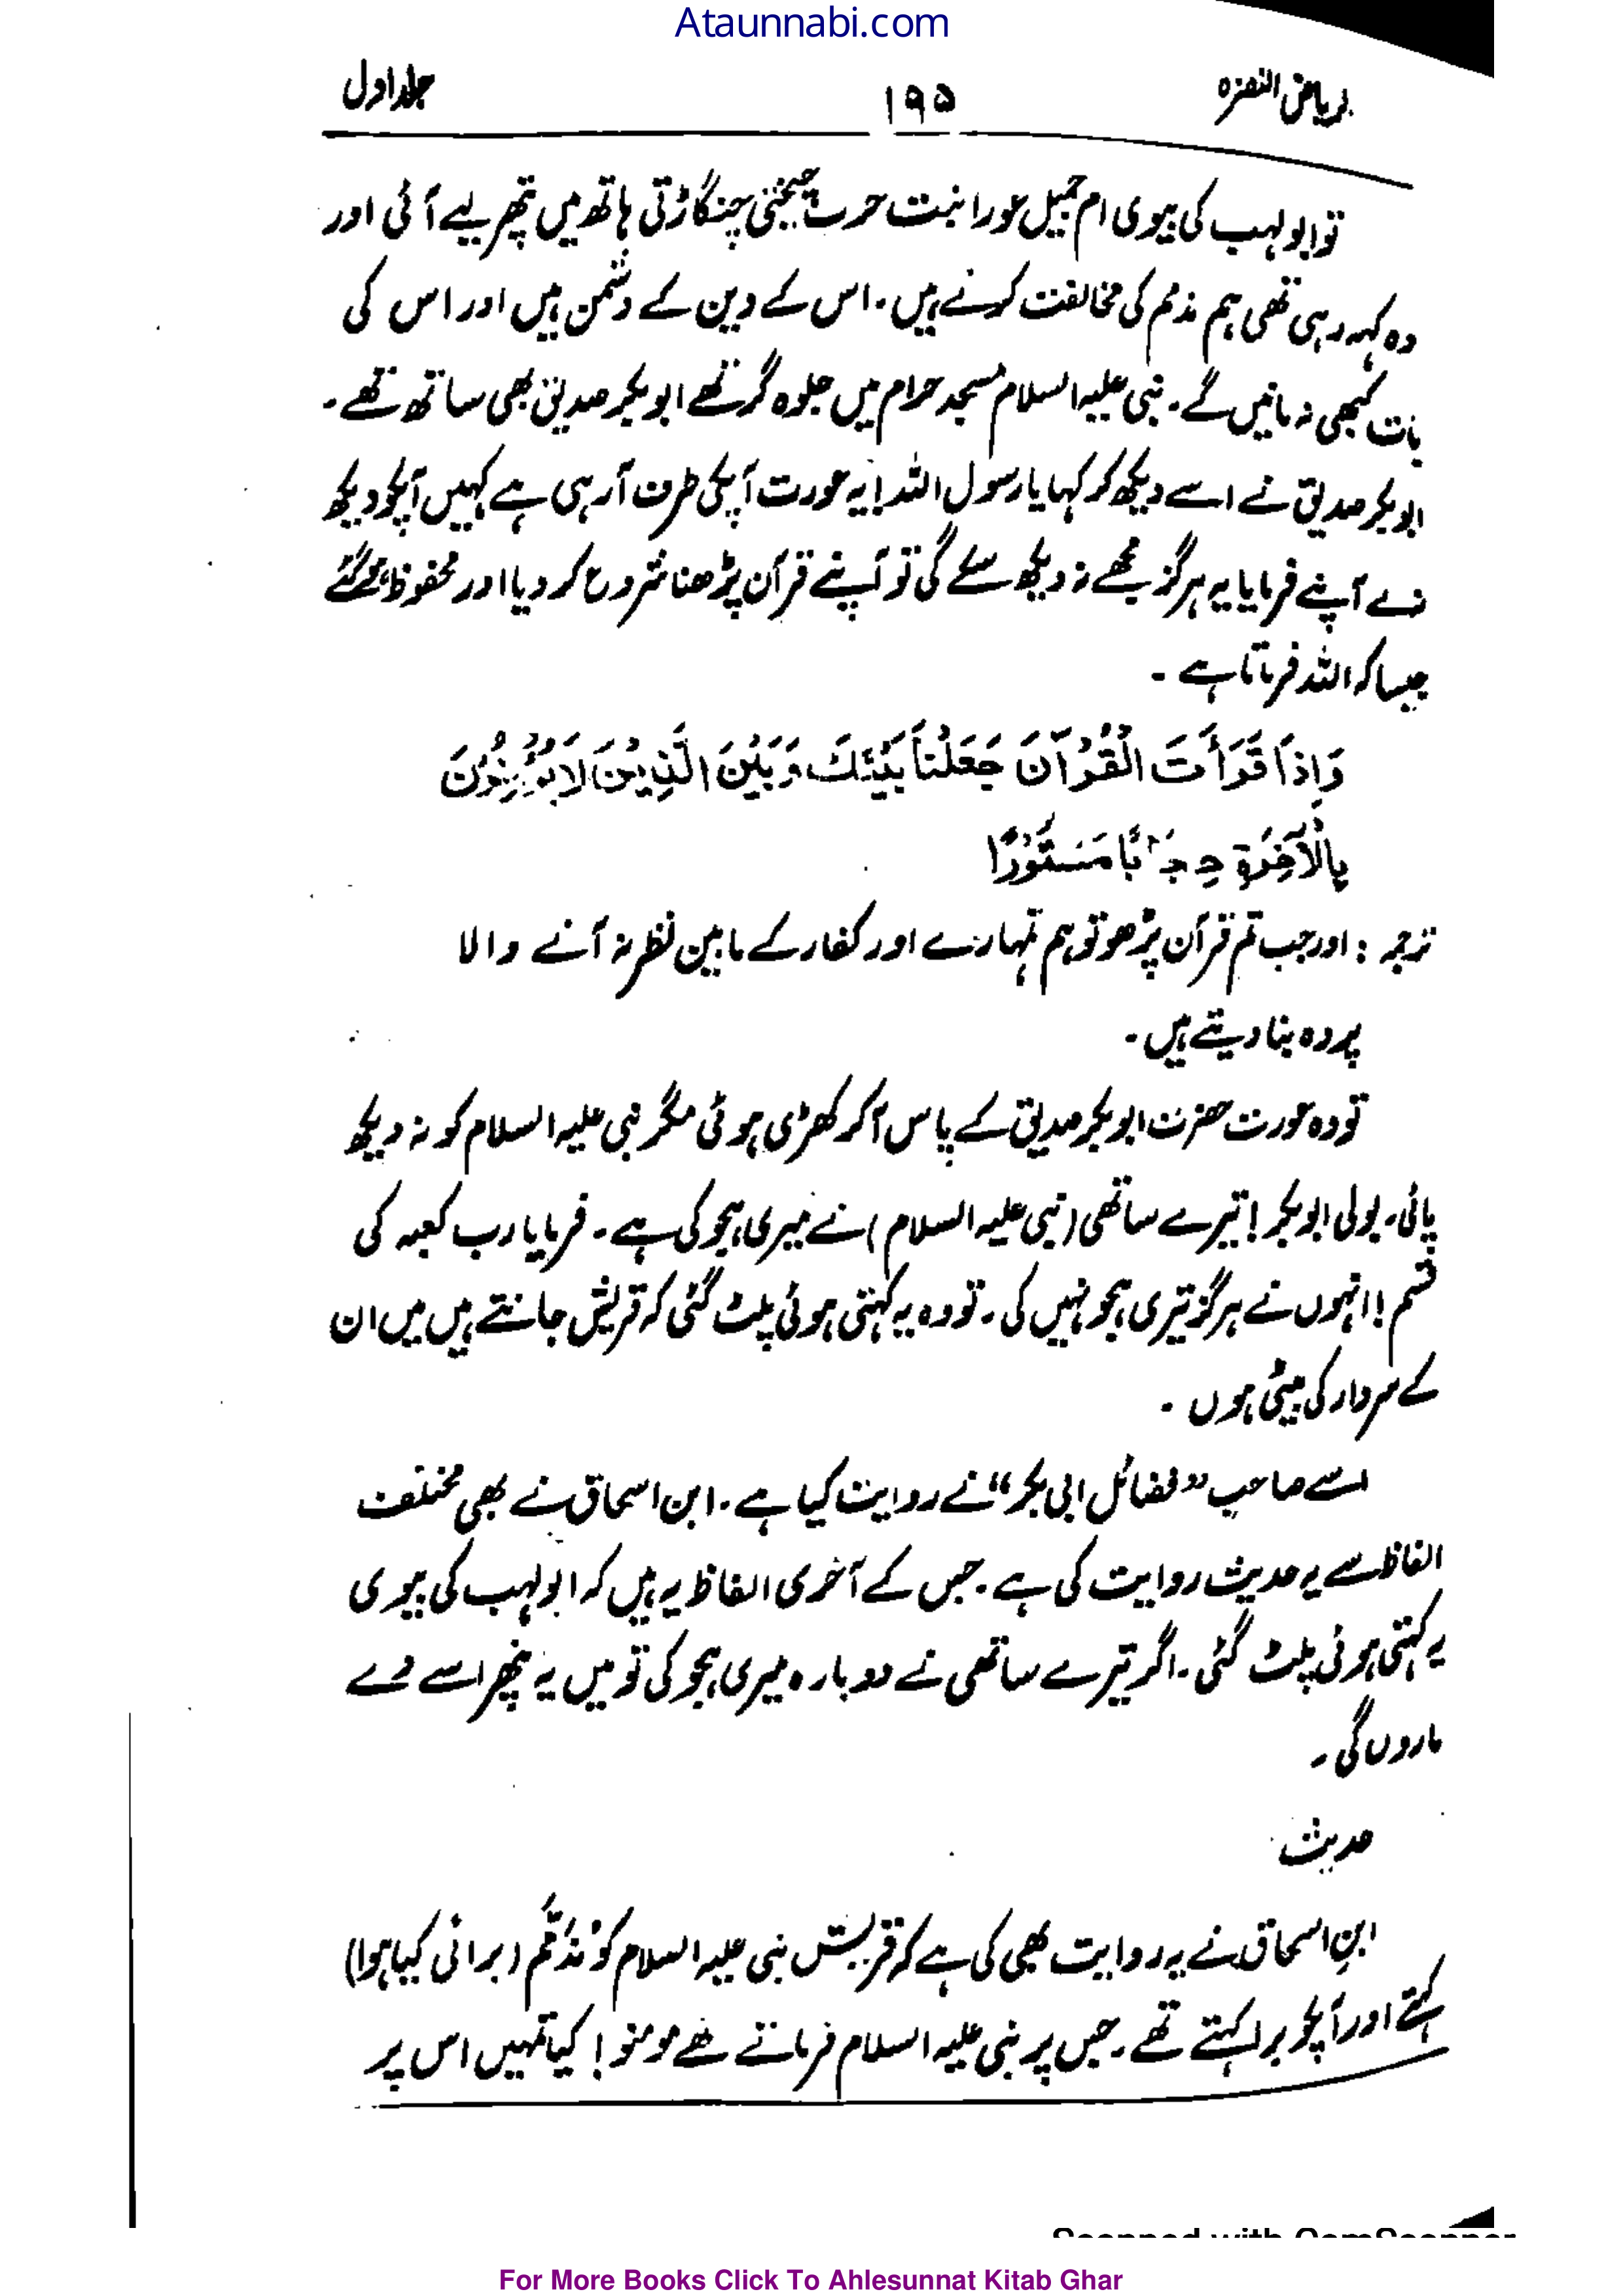 Ataunnabi.com
ریاض النضرہ ۱۹۵ جلد اول
تو ابولہب کی بیوی ام جمیل عورا بنت حرب چیختی چنگاڑتی ہاتھ میں پتھر لیے آئی اور
وہ کہہ رہی تھی ہم مذمم کی مخالفت کرتے ہیں۔ اس کے دین کے دشمن ہیں اور اس کی
بات کبھی نہ مانیں گے۔ نبی علیہ السلام مسجد حرام میں جلوہ گر تھے ابوبکر صدیق بھی ساتھ تھے۔
ابوبکر صدیق نے اسے دیکھ کر کہا یا رسول اللہ! یہ عورت آپکی طرف آرہی ہے کہیں آپکو دیکھ
نہ لے آپنے فرمایا یہ ہرگز مجھے نہ دیکھ سکے گی تو آپنے قرآن پڑھنا شروع کر دیا اور محفوظ ہوگئے
جیسا کہ اللہ فرماتا ہے ۔
وَاِذَا قَرَأْتَ الْقُرْآنَ جَعَلْنَا بَيْنَكَ وَبَيْنَ الَّذِيْنَ لَا يُؤْمِنُوْنَ
بِالْآخِرَةِ حِجَابًا مَسْتُوْرًا
ترجمہ : اور جب تم قرآن پڑھو تو ہم تمہارے اور کفار کے مابین نظر نہ آنے والا
پردہ بنا دیتے ہیں۔
تو وہ عورت حضرت ابوبکر صدیق کے پاس آکر کھڑی ہوئی مگر نبی علیہ السلام کو نہ دیکھ
پائی۔ بولی ابوبکر! تیرے ساتھی (نبی علیہ السلام) نے میری ہجو کی ہے۔ فرمایا رب کعبہ کی
قسم! انہوں نے ہرگز تیری ہجو نہیں کی۔ تو وہ یہ کہتی ہوئی پلٹ گئی کہ قریش جانتے ہیں میں ان
کے سردار کی بیٹی ہوں ۔
اسے صاحب ”فضائل ابی بکر“ نے روایت کیا ہے۔ ابن اسحاق نے بھی مختلف
الفاظ سے یہ حدیث روایت کی ہے۔ جس کے آخری الفاظ یہ ہیں کہ ابولہب کی بیوی
یہ کہتی ہوئی پلٹ گئی۔ اگر تیرے ساتھی نے دوبارہ میری ہجو کی تو میں یہ پتھر اسے دے
ماروں گی۔
حدیث
ابنِ اسحاق نے یہ روایت بھی کی ہے کہ قریش نبی علیہ السلام کو مُذَمَّم (برائی کیا ہوا)
کہتے اور آپکو برا کہتے تھے۔ جس پر نبی علیہ السلام فرماتے تھے مومنو! کیا تمہیں اس پر
Scanned with CamScanner
For More Books Click To Ahlesunnat Kitab Ghar